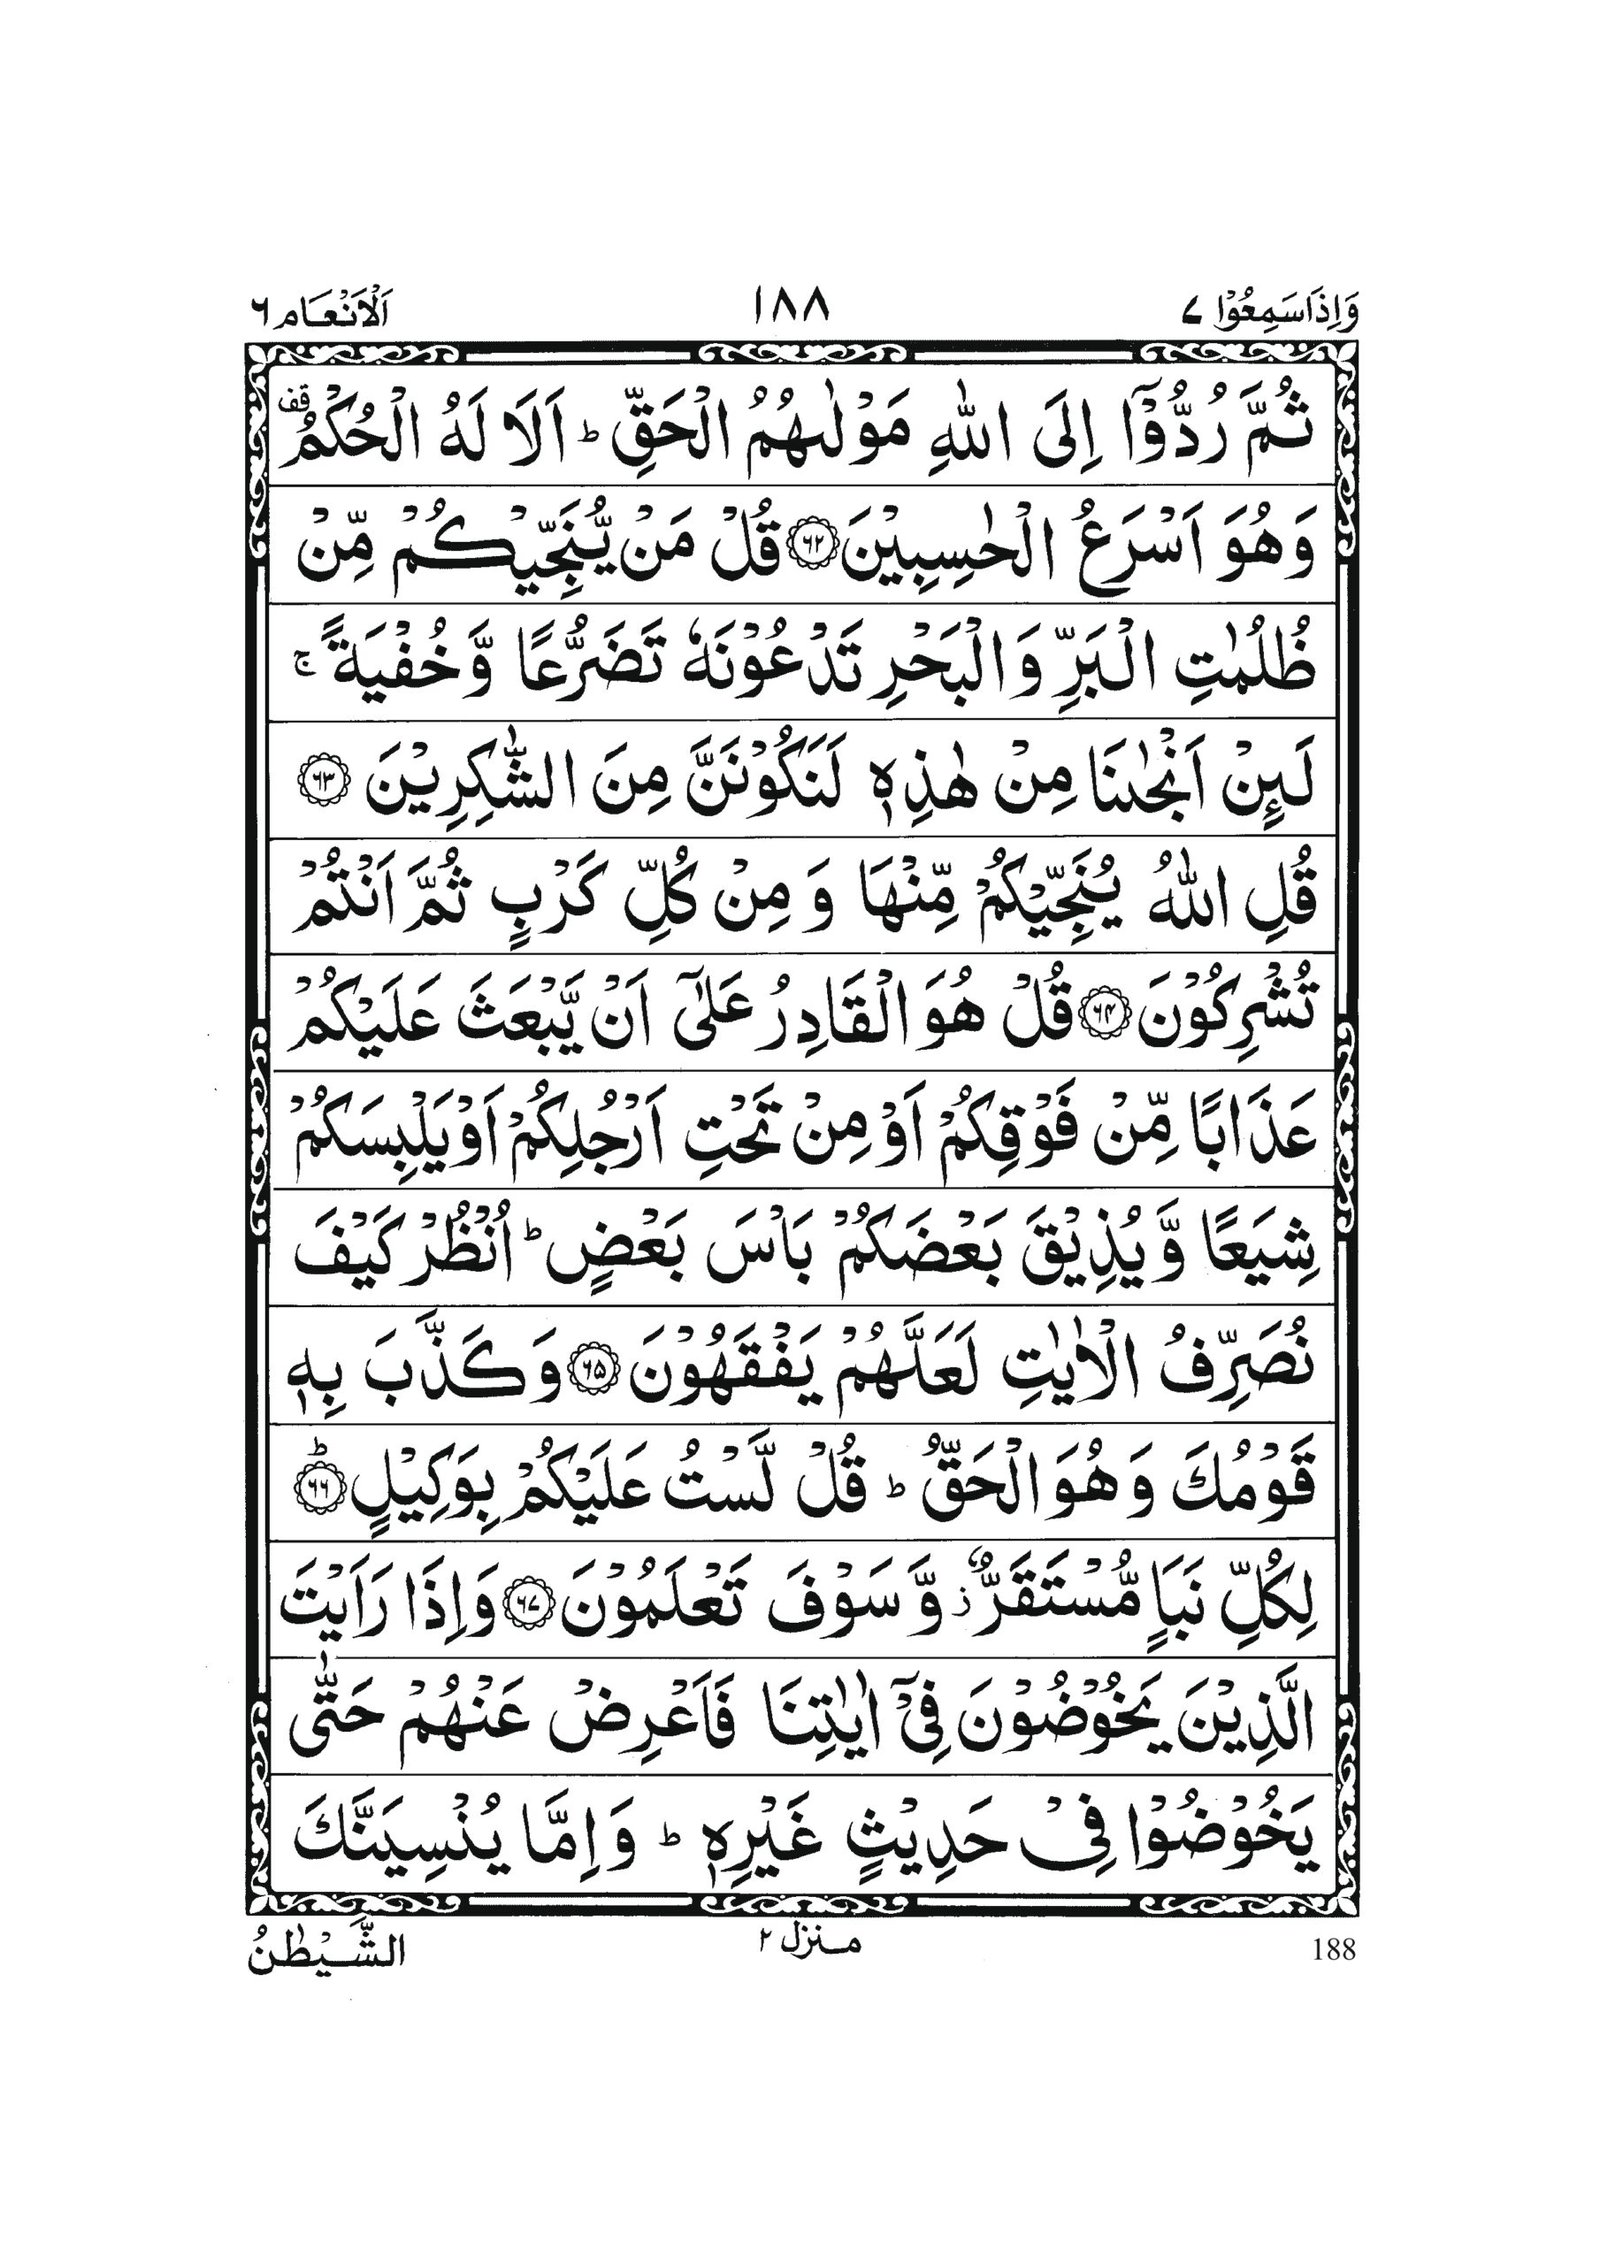 وَاِذَا سَمِعُوْا ۷ ۱۸۸ اَلْاَنْعَام ۶
ثُمَّ رُدُّوْۤا اِلَى اللّٰهِ مَوْلٰىهُمُ الْحَقِّ ؕ اَلَا لَهُ الْحُكْمُ ۫
وَهُوَ اَسْرَعُ الْحٰسِبِيْنَ ﴿۶۲﴾ قُلْ مَنْ يُّنَجِّيْكُمْ مِّنْ
ظُلُمٰتِ الْبَرِّ وَالْبَحْرِ تَدْعُوْنَهٗ تَضَرُّعًا وَّخُفْيَةً ۚ
لَىِٕنْ اَنْجٰىنَا مِنْ هٰذِهٖ لَنَكُوْنَنَّ مِنَ الشّٰكِرِيْنَ ﴿۶۳﴾
قُلِ اللّٰهُ يُنَجِّيْكُمْ مِّنْهَا وَمِنْ كُلِّ كَرْبٍ ثُمَّ اَنْتُمْ
تُشْرِكُوْنَ ﴿۶۴﴾ قُلْ هُوَ الْقَادِرُ عَلٰۤى اَنْ يَّبْعَثَ عَلَيْكُمْ
عَذَابًا مِّنْ فَوْقِكُمْ اَوْ مِنْ تَحْتِ اَرْجُلِكُمْ اَوْ يَلْبِسَكُمْ
شِيَعًا وَّيُذِيْقَ بَعْضَكُمْ بَاْسَ بَعْضٍ ؕ اُنْظُرْ كَيْفَ
نُصَرِّفُ الْاٰيٰتِ لَعَلَّهُمْ يَفْقَهُوْنَ ﴿۶۵﴾ وَكَذَّبَ بِهٖ
قَوْمُكَ وَهُوَ الْحَقُّ ؕ قُلْ لَّسْتُ عَلَيْكُمْ بِوَكِيْلٍ ﴿۶۶﴾ؕ
لِكُلِّ نَبَاٍ مُّسْتَقَرٌّ ؗ وَّسَوْفَ تَعْلَمُوْنَ ﴿۶۷﴾ وَاِذَا رَاَيْتَ
الَّذِيْنَ يَخُوْضُوْنَ فِيْۤ اٰيٰتِنَا فَاَعْرِضْ عَنْهُمْ حَتّٰى
يَخُوْضُوْا فِيْ حَدِيْثٍ غَيْرِهٖ ؕ وَاِمَّا يُنْسِيَنَّكَ
188 منزل ۲ الشَّيْطٰنُ